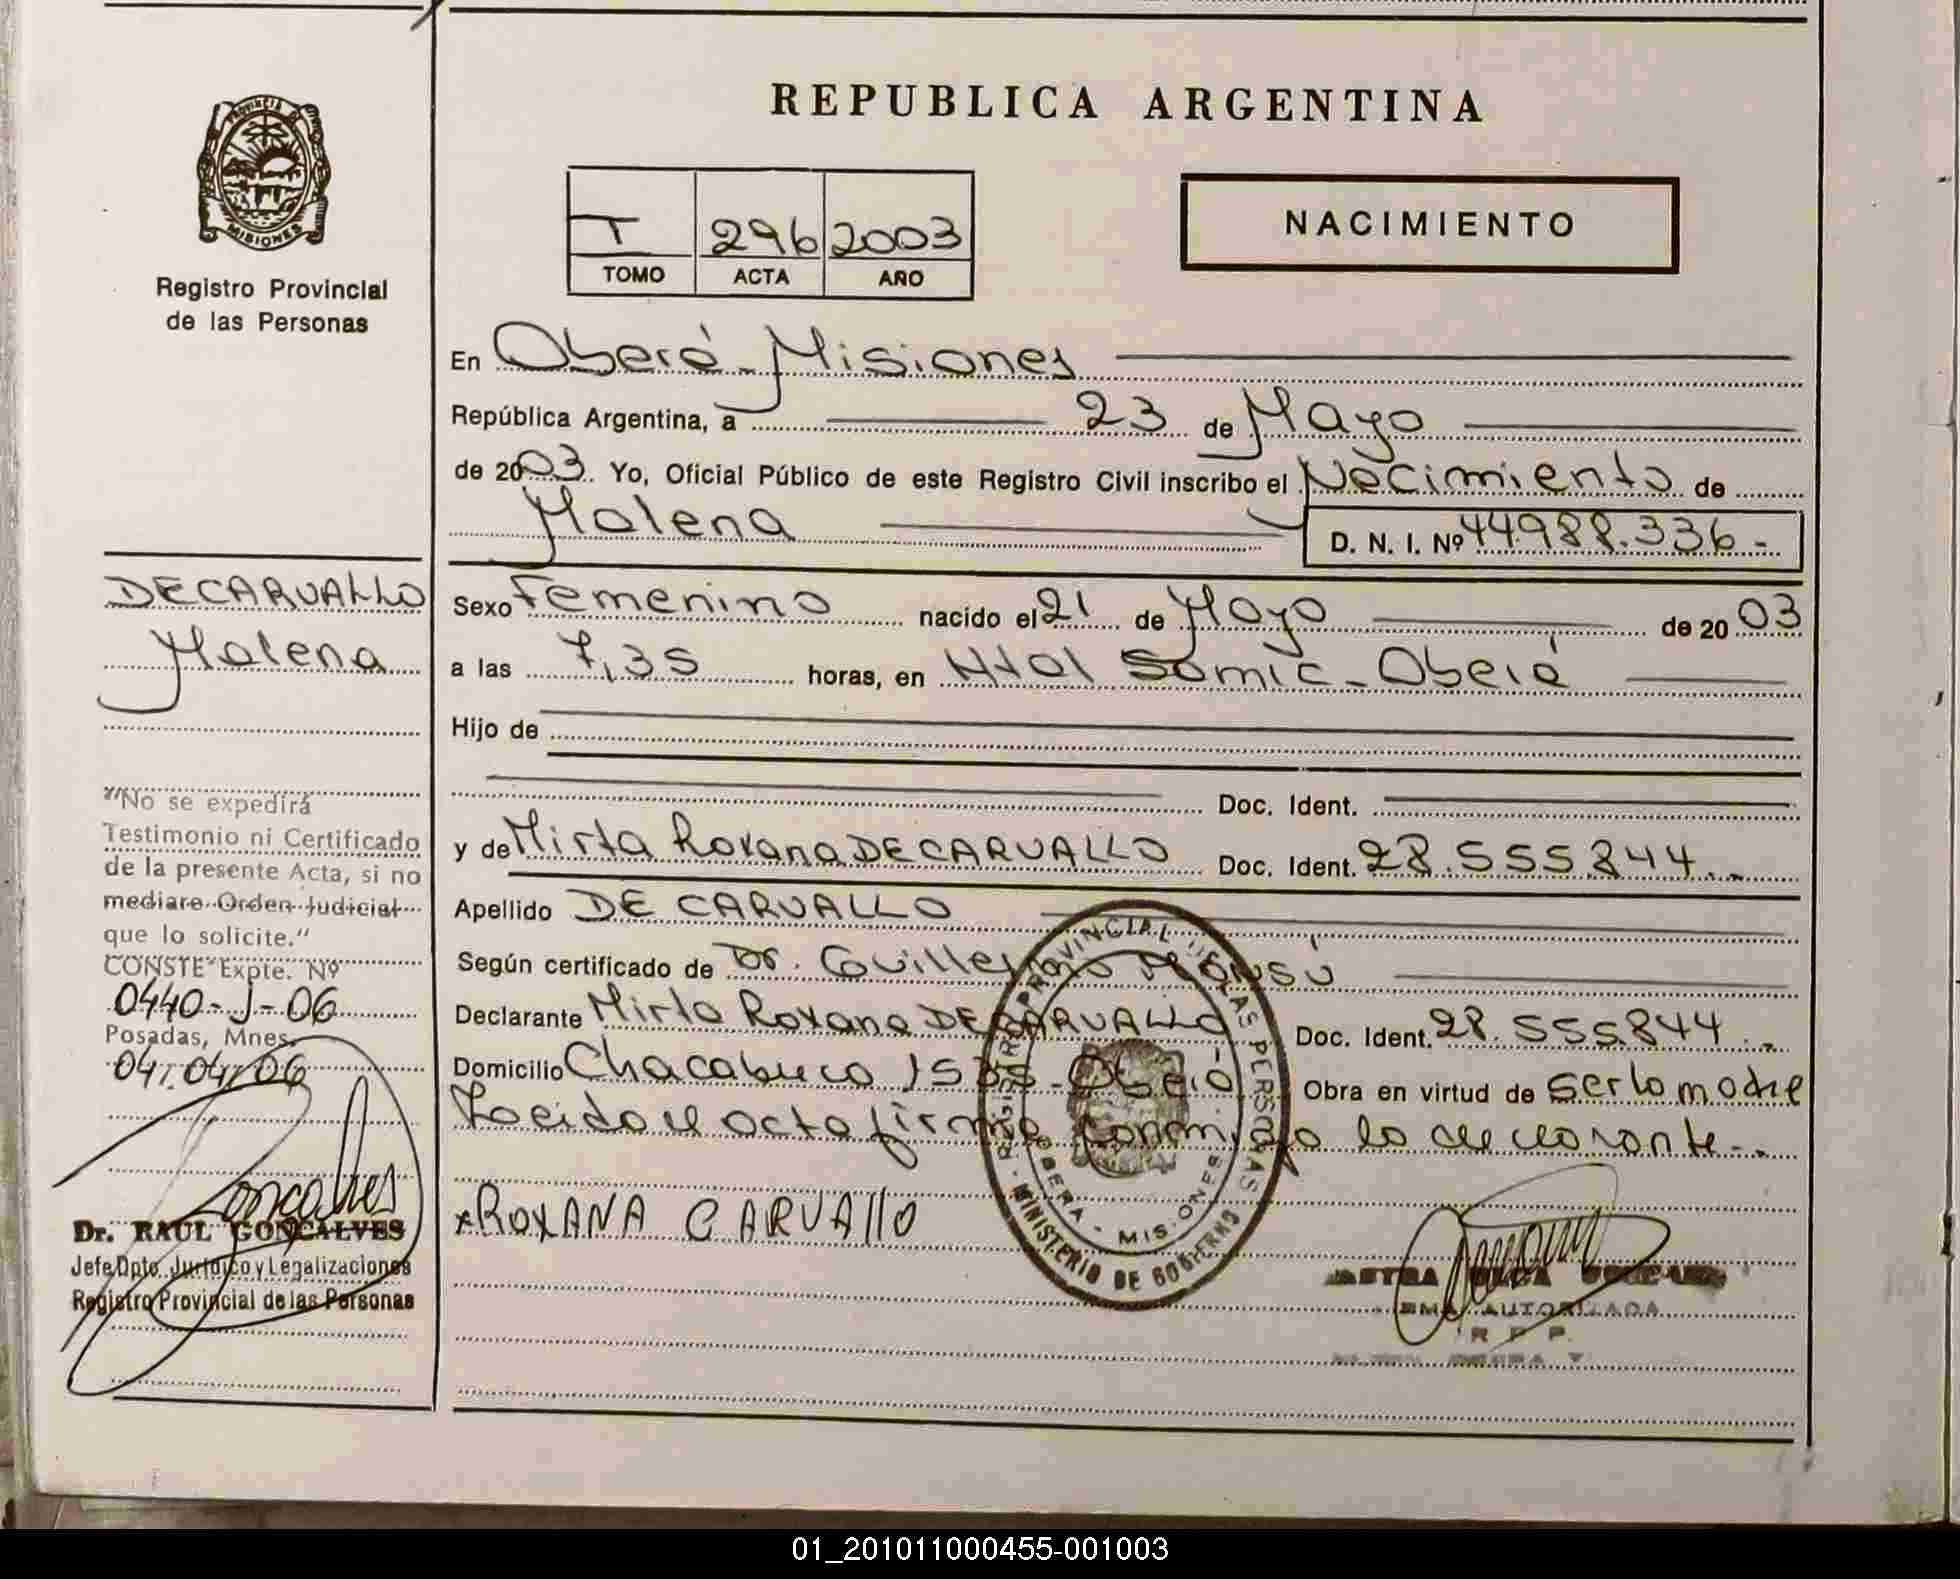 PROVINCIA
MISIONES
Registro Provincial
de las Personas
REPUBLICA ARGENTINA
T 296 2003
TOMO ACTA AÑO
NACIMIENTO
En Oberá - Misiones
República Argentina, a 23 de Mayo
de 2003. Yo, Oficial Público de este Registro Civil inscribo el Nacimiento de
Malena
D. N. I. Nº 44.988.336 -
DE CARVALLO
Malena
Sexo Femenino nacido el 21 de Mayo de 2003
a las 7,35 horas, en Htal Samic - Oberá
Hijo de
Doc. Ident.
y de Mirta Roxana DE CARVALLO Doc. Ident. 28.555.844.
Apellido DE CARVALLO
Según certificado de Dr. Guillermo
Declarante Mirta Roxana DE CARVALLO Doc. Ident. 28.555.844
Domicilio Chacabuco - Oberá Obra en virtud de ser la madre
Leída el acta firma conmigo la declarante -
x ROXANA CARVALLO
"No se expedirá
Testimonio ni Certificado
de la presente Acta, si no
mediare Orden Judicial
que lo solicite."
CONSTE Expte. Nº
0440-J-06
Posadas, Mnes.
04/04/06
Goncalves
Dr. RAUL GONCALVES
Jefe Dpto. Jurídico y Legalizaciones
Registro Provincial de las Personas
REGISTRO PROVINCIAL DE LAS PERSONAS
OBERA - MISIONES
MINISTERIO DE GOBIERNO
AUTORIZADA
R P P
01_201011000455-001003